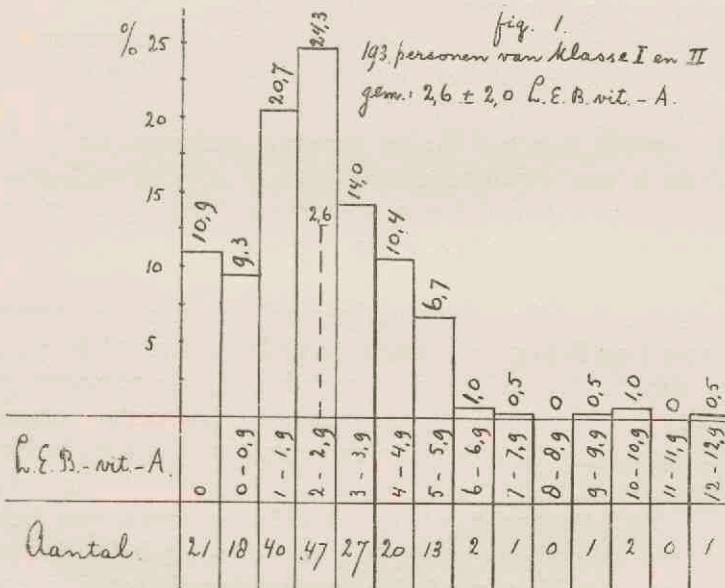 fig. 1.
193 personen van klasse I en II
gem.: 2,6 ± 2,0 L.E.B. vit.-A.
% 25
20
15
10
5
10,9 9,3 20,7 24,3 14,0 10,4 6,7 1,0 0,5 0 0,5 1,0 0 0,5
2,6
L.E.B.-vit.-A. 0 0-0,9 1-1,9 2-2,9 3-3,9 4-4,9 5-5,9 6-6,9 7-7,9 8-8,9 9-9,9 10-10,9 11-11,9 12-12,9
Aantal. 21 18 40 47 27 20 13 2 1 0 1 2 0 1